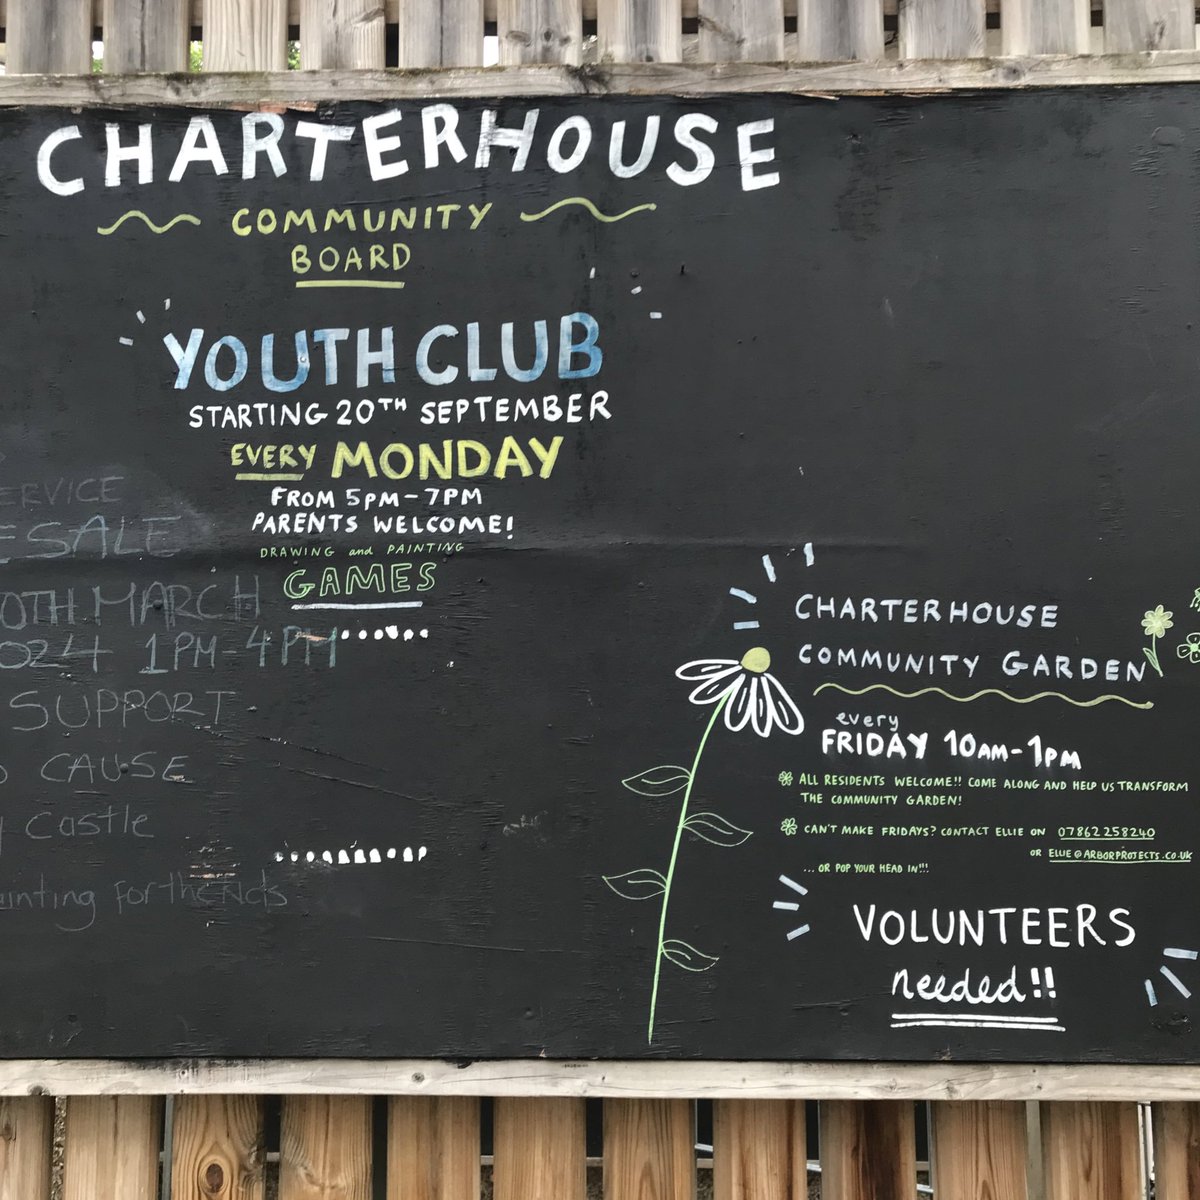 CHARTERHOUSE
COMMUNITY
BOARD
YOUTH CLUB
STARTING 20TH SEPTEMBER
EVERY MONDAY
FROM 5PM-7PM
PARENTS WELCOME!
DRAWING and PAINTING
GAMES
ERVICE
ESALE
0TH MARCH
024 1PM-4PM
SUPPORT
CAUSE
Castle
ainting for the kids
CHARTERHOUSE
COMMUNITY GARDEN
every
FRIDAY 10AM-1PM
ALL RESIDENTS WELCOME!! COME ALONG AND HELP US TRANSFORM
THE COMMUNITY GARDEN!
CAN'T MAKE FRIDAYS? CONTACT ELLIE ON 07862258240
OR ELLIE@ARBORPROJECTS.CO.UK
... OR POP YOUR HEAD IN!!!
VOLUNTEERS
needed!!